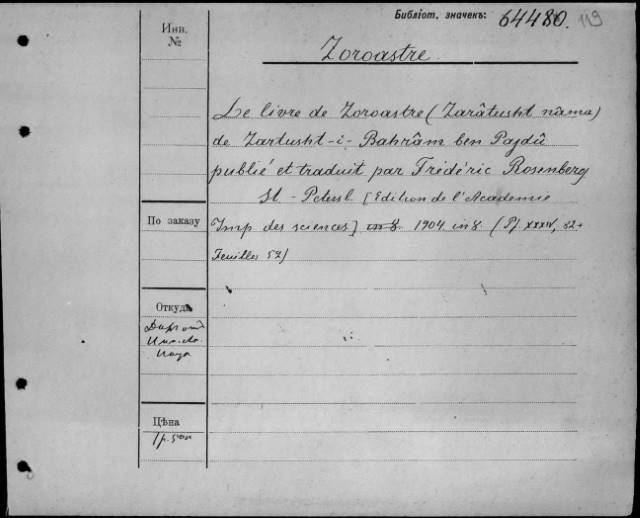 Библіот. значекъ: 64480. 119
Инв.
№
Zoroastre.
Le livre de Zoroastre (Zarâtusht nâma)
de Zartusht-i-Bahrâm ben Pajdû
publié et traduit par Frédéric Rosenberg
St.-Petersb. [Edition de l'Academie
По заказу
Imp des sciences] in 8 1904 in 8 (Pf XXXIV, 82+
Feuilles 52)
Откуда
Цѣна
1 р. 50 к